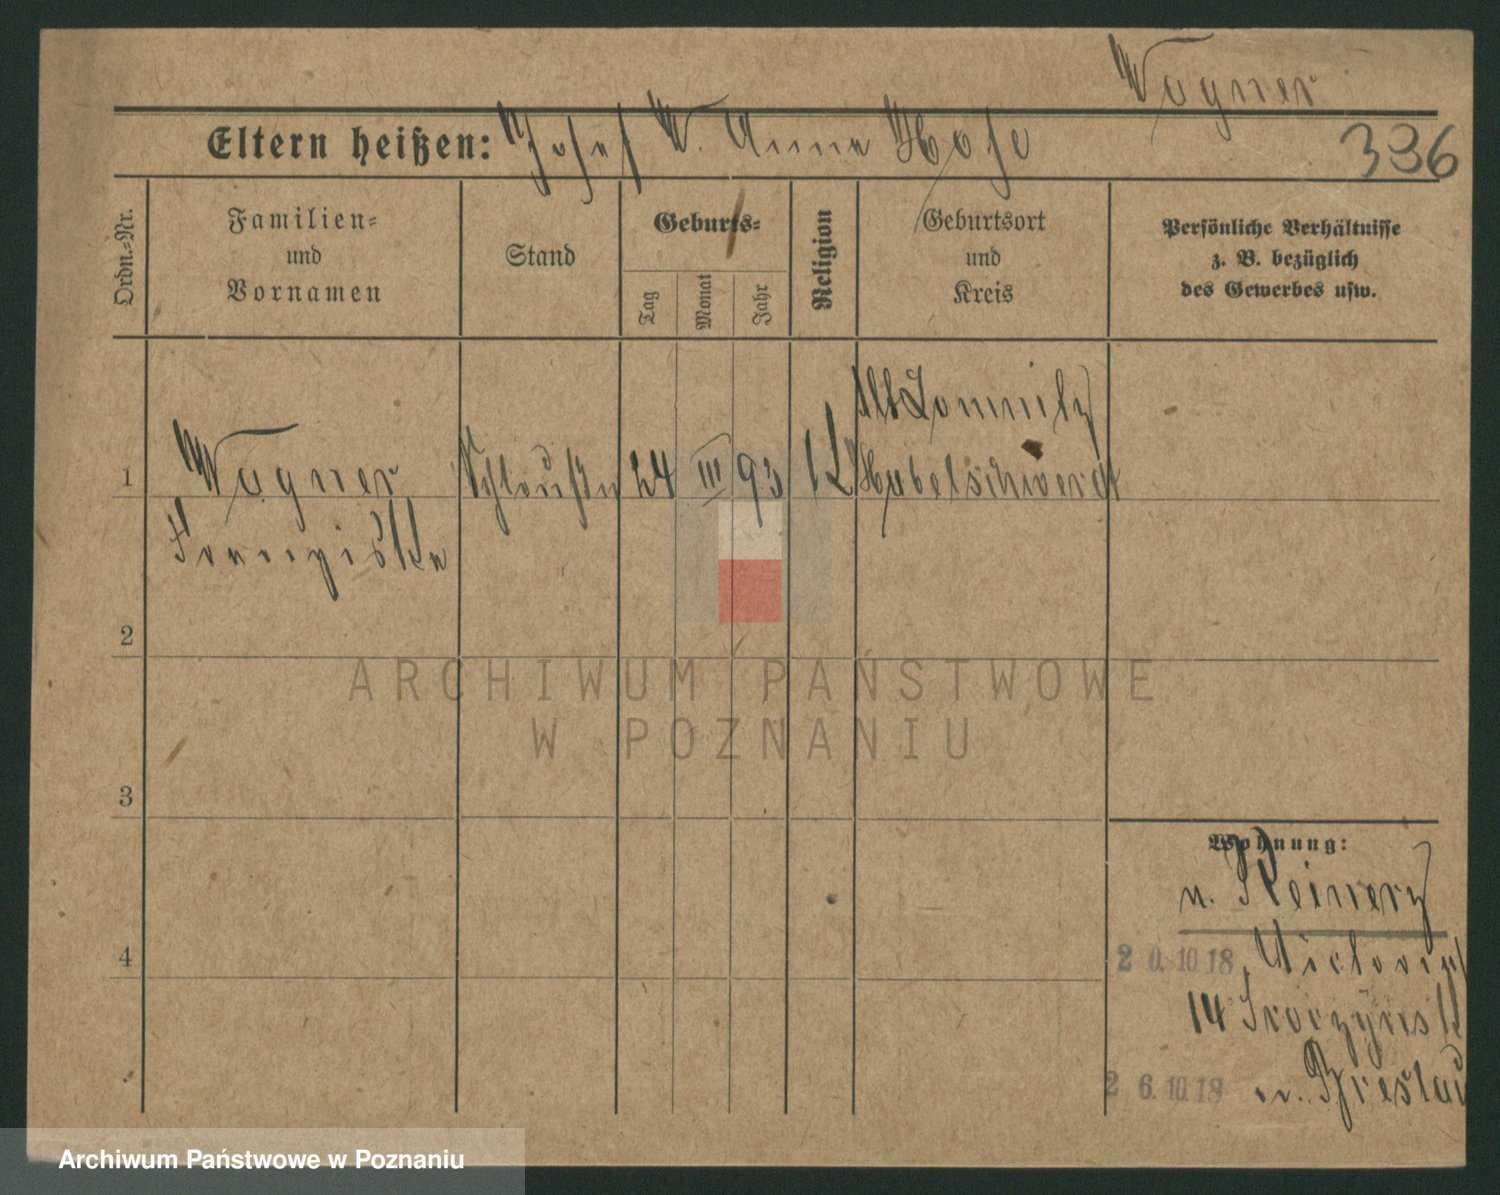 Wagner
Eltern heißen: Josef W. Anna Hose
336
Ordn.-Nr.
Familien-
und
Vornamen
Stand
Geburts-
Tag
Monat
Jahr
Religion
Geburtsort
und
Kreis
Persönliche Verhältnisse
z. B. bezüglich
des Gewerbes usw.
Alt Lomnitz
1 Wagner 24 III 93 Habelschwerdt
Franziska
2
ARCHIWUM PAŃSTWOWE
W POZNANIU
3
Wohnung:
n. Reinerz
4
20.10.18
14
26.10.18 n. Breslau
Archiwum Państwowe w Poznaniu